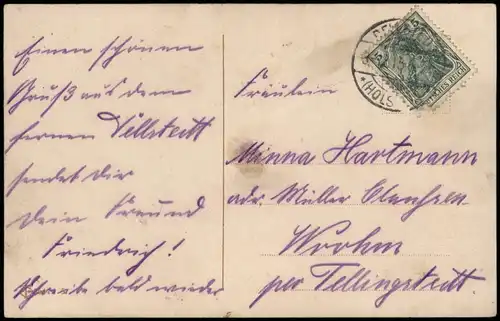 Einen schönen
Gruß aus dem
fernen Süllstedt
sendet dir
dein Freund
Friedrich!
Schreibe bald wieder
Fräulein
Minna Hartmann
adr. Müller
Wrohm
per Tellingstedt.
(HOLST
5